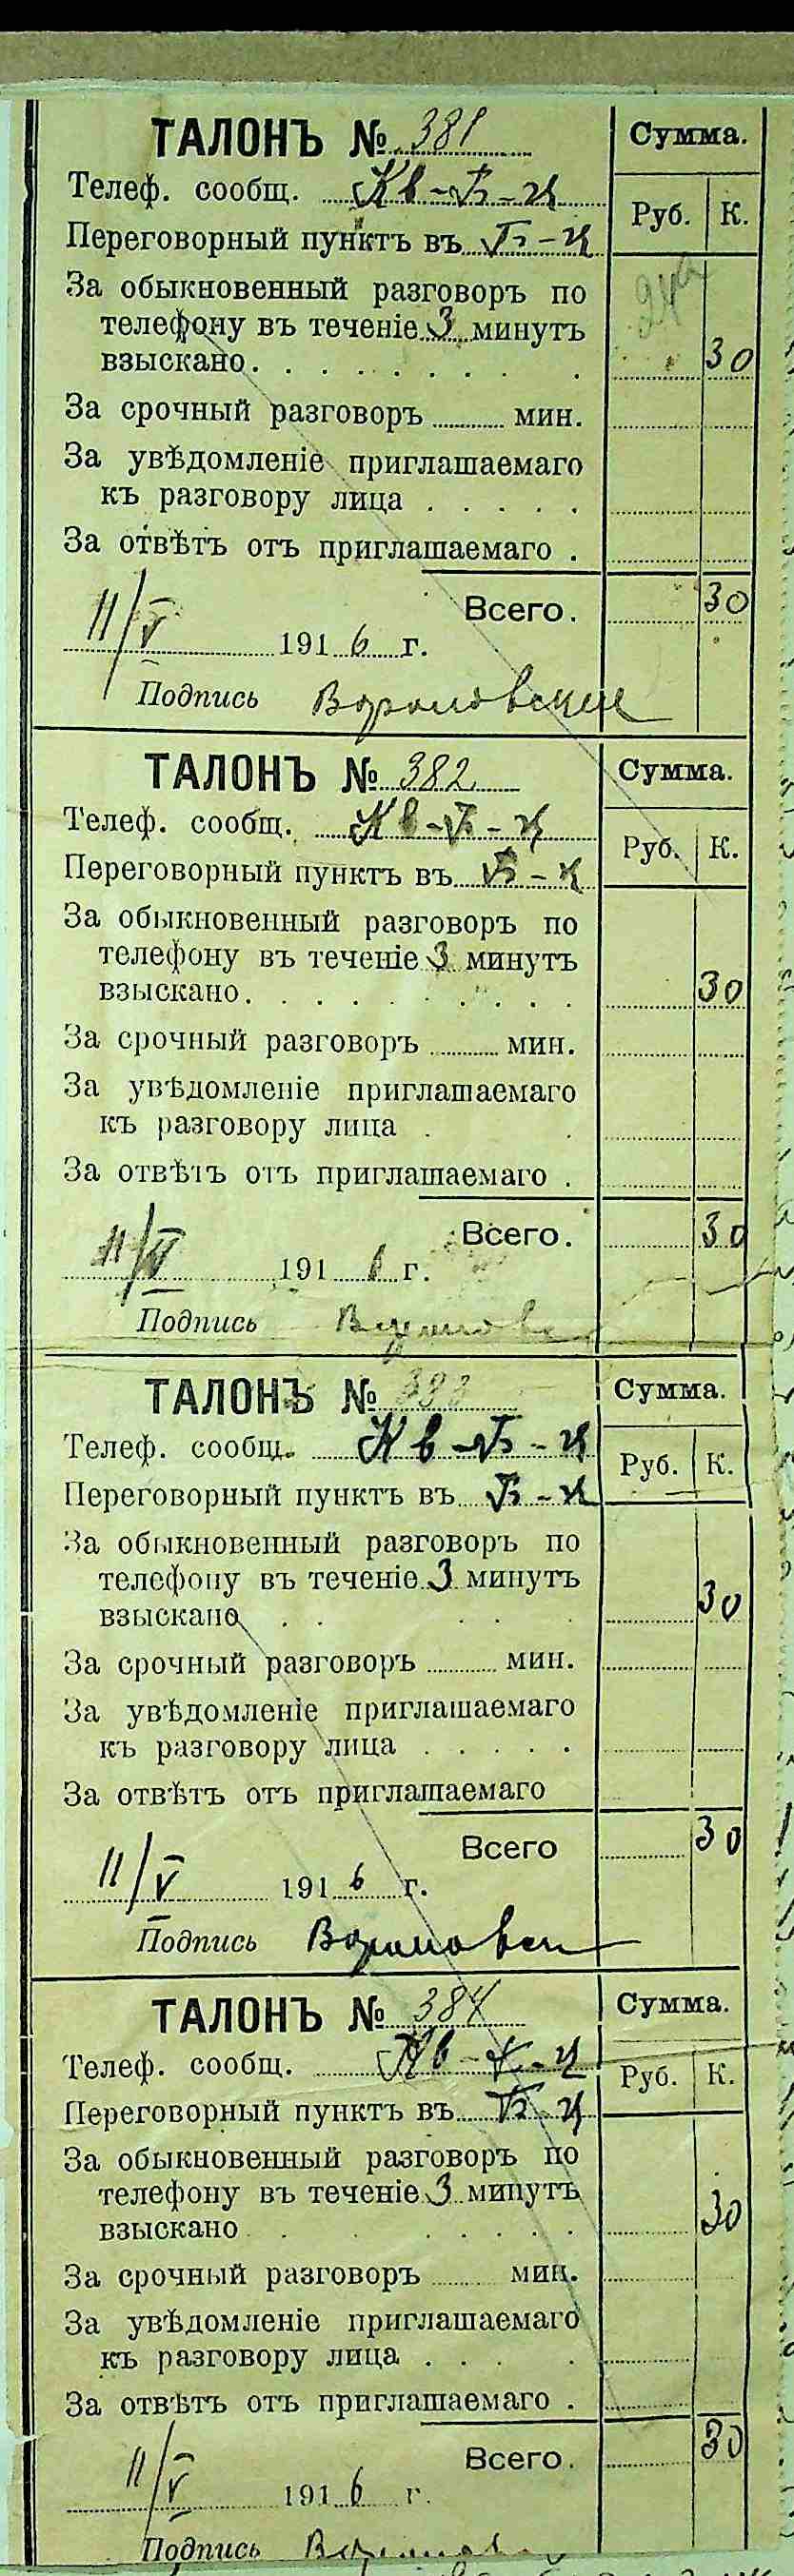 ТАЛОНЪ № 381
Сумма.
Телеф. сообщ. Кв-Б-ц
Руб. К.
Переговорный пунктъ въ Б-ц
За обыкновенный разговоръ по
телефону въ теченіе 3 минутъ
взыскано. . . . . . . . . 30
За срочный разговоръ ...... мин.
За увѣдомленіе приглашаемаго
къ разговору лица . . . . .
За отвѣтъ отъ приглашаемаго .
Всего. 30
11/V 1916 г.
Подпись
ТАЛОНЪ № 382
Сумма.
Телеф. сообщ. Кв-Б-ц
Руб. К.
Переговорный пунктъ въ Б-ц
За обыкновенный разговоръ по
телефону въ теченіе 3 минутъ
взыскано. . . . . . . . . 30
За срочный разговоръ ...... мин.
За увѣдомленіе приглашаемаго
къ разговору лица .
За отвѣтъ отъ приглашаемаго .
Всего. 30
11/V 1916 г.
Подпись
ТАЛОНЪ № 383
Сумма.
Телеф. сообщ. Кв-Б-ц
Руб. К.
Переговорный пунктъ въ Б-ц
За обыкновенный разговоръ по
телефону въ теченіе 3 минутъ
взыскано 30
За срочный разговоръ ...... мин.
За увѣдомленіе приглашаемаго
къ разговору лица . . . . .
За отвѣтъ отъ приглашаемаго
Всего 30
11/V 1916 г.
Подпись
ТАЛОНЪ № 384
Сумма.
Телеф. сообщ. Кв-Б-ц
Руб. К.
Переговорный пунктъ въ Б-ц
За обыкновенный разговоръ по
телефону въ теченіе 3 минутъ
взыскано 30
За срочный разговоръ ...... мин.
За увѣдомленіе приглашаемаго
къ разговору лица . . . .
За отвѣтъ отъ приглашаемаго .
Всего. 30
11/V 1916 г.
Подпись